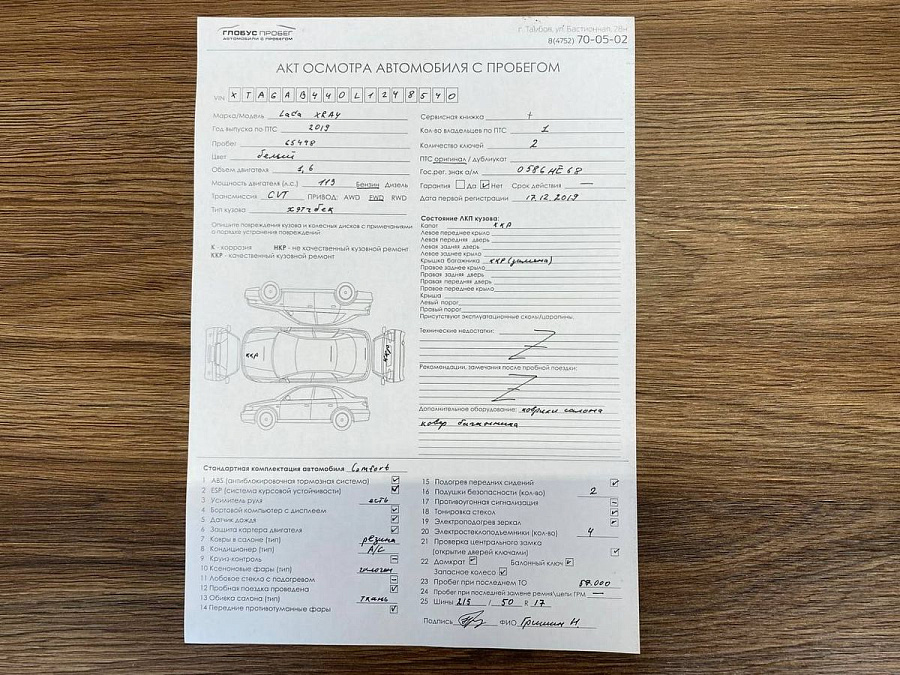 ГЛОБУС ПРОБЕГ
АВТОМОБИЛИ С ПРОБЕГОМ
г. Тамбов, ул. Бастионная, 28н
8(4752) 70-05-02
АКТ ОСМОТРА АВТОМОБИЛЯ С ПРОБЕГОМ
VIN X T A G A B 4 4 0 L 1 2 4 8 5 4 0
Марка/Модель Lada XRAY
Год выпуска по ПТС 2019
Пробег 65498
Цвет белый
Объем двигателя 1,6
Мощность двигателя (л.с.) 113 Бензин Дизель
Трансмиссия CVT ПРИВОД: AWD FWD RWD
Тип кузова хэтчбек
Опишите повреждения кузова и колесных дисков с примечаниями
о порядке устранения повреждений
К - коррозия НКР - не качественный кузовной ремонт
ККР - качественный кузовной ремонт
ККР
Сервисная книжка +
Кол-во владельцев по ПТС 1
Количество ключей 2
ПТС оригинал / дубликат
Гос.рег. знак а/м О586НЕ68
Гарантия Да Нет Срок действия —
Дата первой регистрации 17.12.2019
Состояние ЛКП кузова:
Капот ККР
Левое переднее крыло
Левая передняя дверь
Левая задняя дверь
Левое заднее крыло
Крышка багажника ККР (замена)
Правое заднее крыло
Правая задняя дверь
Правая передняя дверь
Правое переднее крыло
Крыша
Левый порог
Правый порог
Присутствуют эксплуатационные сколы/царапины.
Технические недостатки:
Рекомендации, замечания после пробной поездки:
Дополнительное оборудование: коврики салона
ковер багажника
Стандартная комплектация автомобиля Comfort
1 ABS (антиблокировочная тормозная система)
2 ESP (система курсовой устойчивости)
3 Усилитель руля есть
4 Бортовой компьютер с дисплеем
5 Датчик дождя
6 Защита картера двигателя
7 Ковры в салоне (тип) резина
8 Кондиционер (тип) A/C
9 Круиз-контроль
10 Ксеноновые фары (тип) галоген
11 Лобовое стекло с подогревом
12 Пробная поездка проведена
13 Обивка салона (тип) ткань
14 Передние противотуманные фары
15 Подогрев передних сидений
16 Подушки безопасности (кол-во) 2
17 Противоугонная сигнализация
18 Тонировка стекол
19 Электроподогрев зеркал
20 Электростеклоподъемники (кол-во) 4
21 Проверка центрального замка
(открытие дверей ключами)
22 Домкрат Балонный ключ
Запасное колесо
23 Пробег при последнем ТО
24 Пробег при последней замене ремня\цепи ГРМ —
25 Шины 215 / 50 R 17
Подпись ФИО Гришин Н